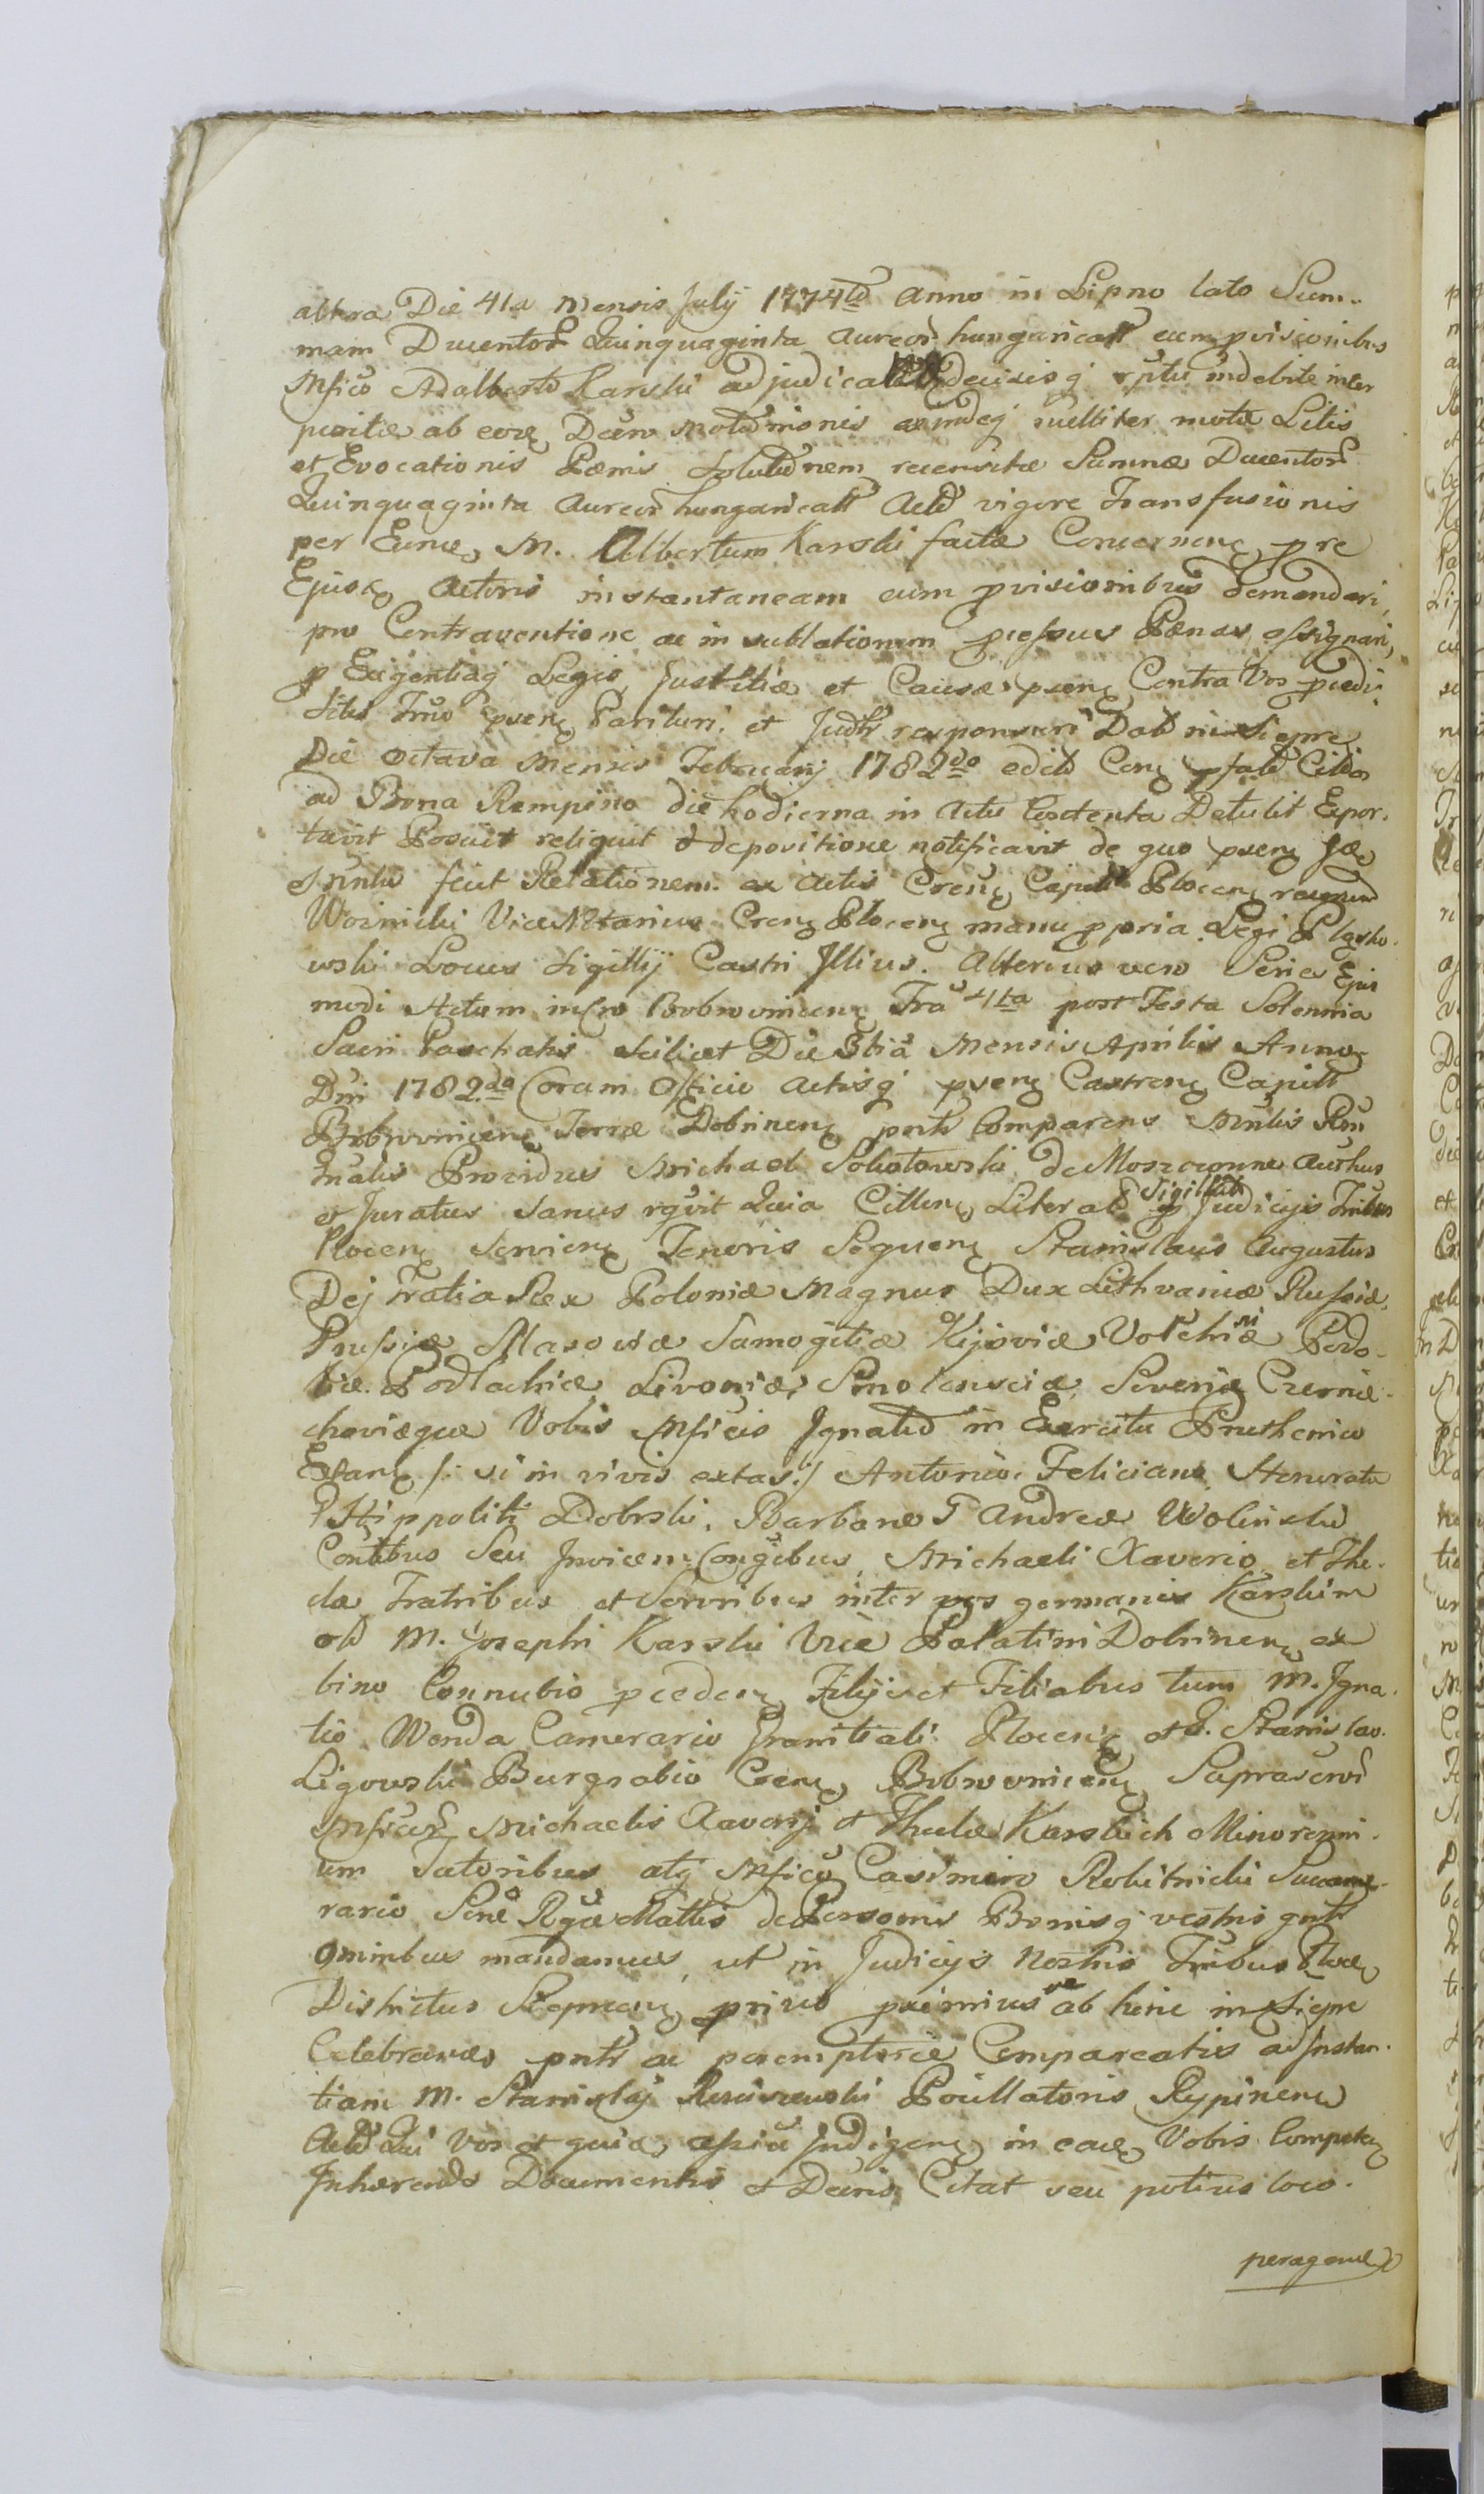 altera Die 4ta Mensis Julij 1774to Anno in Lipno lato Sum-
mam Ducentor Quinquaginta Aureor hungaricall cum pvisionibus
Mfico Adalberto Karski adjudicat decisisq rptu indebite inter
positæ ab eoq Decro Motionis æmdeq nulliter motæ Litis
et Evocationis Pænis Solutonem recensitæ Summæ Ducentor
Quinquaginta Aureor hungaricall Acto vigore Transfusionis
per Eunde M. Albertum Karski factæ Concernen p re
Ejusd Actoris instantaneam cum pvisionibus demandari,
pro Contraventione ac in sublationem pcessus Pænas assignari,
p Exigentiaq Legis Justitiæ et Causæ psen Contra Vos pcedi.
Sitis Trno psen Parituri et Judtr responsuri Dat in Sierpre
Die Octava Mensis Februarij 1782do edito Con pfato Citto
ad Bona Rempino die hodierna in Actu Contenta Detulit Expor-
tavit Posuit reliquit & depositione notificavit de quo psen Jæ
Mntrlis fecit Relationem ex Actis Cren Capitl Plocen
Woznicki ViceNotarius Cren Plocen manu ppria. Legi
wski Locus Sigilly Castri Illius. Alterius vero Series Ejus
modi Actum in Cro Bobrownicen Fra 4ta post Festa Solennia
Sacri Paschatis scilicet Die 3tia Mensis Aprilis Anno
Dni 1782do Coram Officio Actisq psen Castren Capitl
Bobrownicen Terræ Dobrinen pntr Comparens Mntlis Rni
Gnalis Providus Michael Sokołowski de Moszczonne Authus
et Juratus Sanus rqvit Quia Citten Literat Sigillat p Judicijs Tribus
Plocen Servien Tenoris Sequen Stanislaus Augustus
Dej Gratia Rex Poloniæ Magnus Dux Lithvaniæ Russiæ,
Prussiæ Masoviæ Samogitiæ Kijoviæ Volchiniæ Podo-
liæ Podlachiæ Livoniæ, Smolensciæ Severiæ Czernie-
choviæque Vobis Mficis Ignatio in Exercitu Pruthenico
Exan /: si in vivis extas :/ Antonio, Feliciano Honorata
Hippoliti Dobrski, Barbaræ Andreæ Wolinski
Contbus Seu Invicem Congibus, Michaeli Xaverio et The-
cla Fratribus et Sororibus inter vos germanis Karskim
olo M. Josephi Karski Vice Palatini Dobrinen ex
bino Connubio pceden Filijs et Filiabus tum M. Igna-
tio Wonda Camerario Granitiali Plocen et G. Stanislao
Ligowski Burgrabio Cren Bobrownicen Suprascrior
Mficor Michaelis Xaverij et Theclæ Karskich Minorenni-
um Tutoribus atq Mfico Casimiro Rokitnicki Succame-
rario Sene Rgiæ Mattis de Personis Bonisq vestris gntr
Omnibus mandamus, ut in Judicijs Nostris Tribus Plocen
Districtus Sieprcen, prius pximius ve ab hinc in Siepre
Celebrandis pntr ac peremptorie Compareatis ad Instan-
tiam M. Stanislaj Rosciszewski Pocillatoris Rypinen
Acto Qui Vos et quia assia Indigen in eaue Vobis Competen
Inhærendo Documentis et Decris Citat seu potius loco.
peragenda